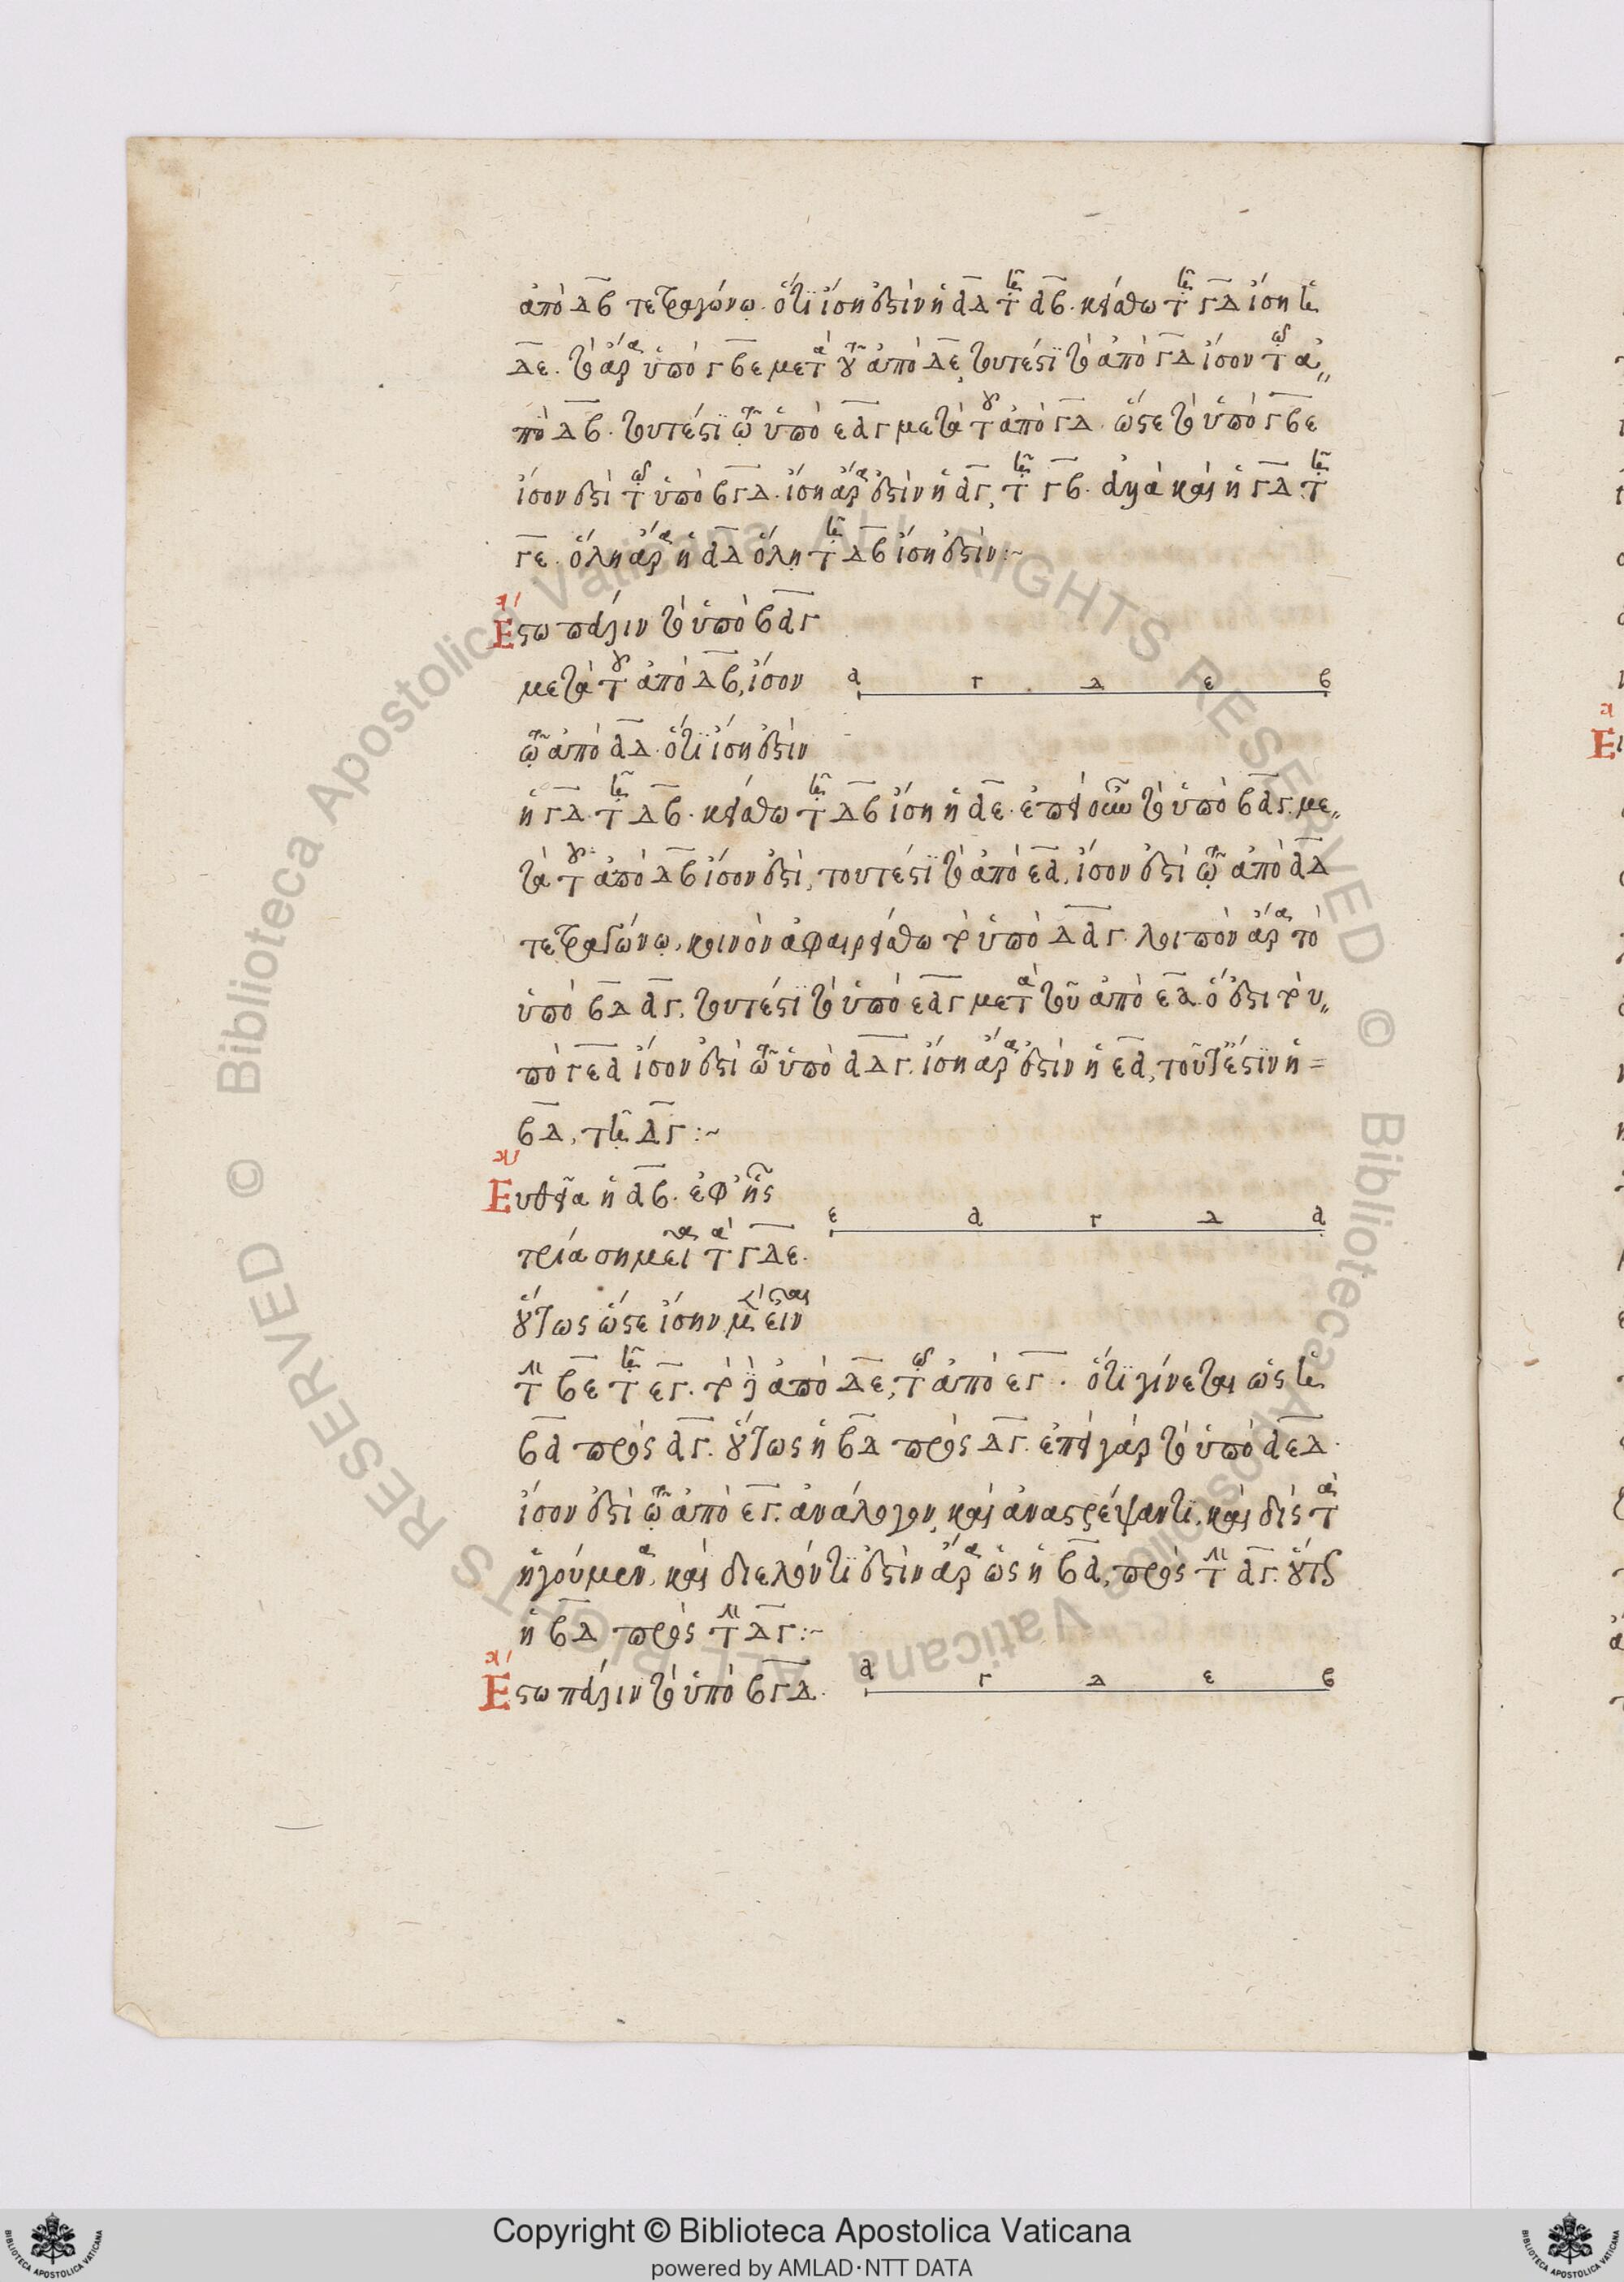 ἀπὸ ΔΒ τετραγώνῳ. ὅτι ἴση ἐστὶν ἡ ΑΔ τῇ ΔΒ. κείσθω τῇ ΓΔ ἴση ἡ
ΔΕ. τὸ ἄρα ὑπὸ ΓΒΕ μετὰ τοῦ ἀπὸ ΔΕ, τουτέστι τὸ ἀπὸ ΓΔ ἴσον τῷ ἀ〃
πὸ ΔΒ. τουτέστι τῷ ὑπὸ ΕΑΓ μετὰ τοῦ ἀπὸ ΓΔ. ὥστε τὸ ὑπὸ ΓΒΕ
ἴσον ἐστὶ τῷ ὑπὸ ΒΓΔ. ἴση ἄρα ἐστὶν ἡ ΑΓ, τῇ ΓΒ. ἀλλὰ καὶ ἡ ΓΔ τῇ
ΓΕ. ὅλη ἄρα ἡ ΑΔ ὅλῃ τῇ ΔΒ ἴση ἐστίν:~
Ἔστω πάλιν τὸ ὑπὸ ΒΑΓ
μετὰ τοῦ ἀπὸ ΔΒ, ἴσον
Α Γ Δ Ε Β
τῷ ἀπὸ ΑΔ. ὅτι ἴση ἐστὶν
ἡ ΓΔ τῇ ΔΒ. κείσθω τῇ ΔΒ ἴση ἡ ΑΕ. ἐπεὶ οὖν τὸ ὑπὸ ΒΑΓ. με〃
τὰ τοῦ ἀπὸ ΔΒ ἴσον ἐστὶ, τουτέστι τὸ ἀπὸ ΕΑ, ἴσον ἐστὶ τῷ ἀπὸ ΑΔ
τετραγώνῳ, κοινὸν ἀφαιρείσθω τὸ ὑπὸ ΔΑΓ. λοιπὸν ἄρα τὸ
ὑπὸ ΒΔ ΑΓ, τουτέστι τὸ ὑπὸ ΕΑΓ μετὰ τοῦ ἀπὸ ΕΑ. ὅ ἐστι τὸ ὑ〃
πὸ ΓΕΑ ἴσον ἐστὶ τῷ ὑπὸ ΑΔΓ. ἴση ἄρα ἐστὶν ἡ ΕΑ, τοῦτέστιν ἡ =
ΒΔ, τῇ ΔΓ:~
Εὐθεῖα ἡ ΑΒ. ἐφ' ἧς
Ε Α Γ Δ Α
τρία σημεῖα τὰ ΓΔΕ.
οὕτως ὥστε ἴσην μὲν εἶναι
τὴν ΒΕ τῇ ΕΓ. τὸ δὲ ἀπὸ ΔΕ, τῷ ἀπὸ ΕΓ. ὅτι γίνεται ὡς ἡ
ΒΑ πρὸς ΑΓ. οὕτως ἡ ΒΔ πρὸς ΔΓ. ἐπεὶ γὰρ τὸ ὑπὸ ΑΕΔ.
ἴσον ἐστὶ τῷ ἀπὸ ΕΓ. ἀνάλογον, καὶ ἀναστρέψαντι, καὶ δὶς τὰ
ἡγούμενα, καὶ διελόντι ἐστὶν ἄρα ὡς ἡ ΒΑ, πρὸς τὴν ΑΓ. οὕτως
ἡ ΒΔ πρὸς τὴν ΔΓ:~
Ἔστω πάλιν τὸ ὑπὸ ΒΓΔ.
Α Γ Δ Ε Β
Copyright © Biblioteca Apostolica Vaticana
powered by AMLAD·NTT DATA